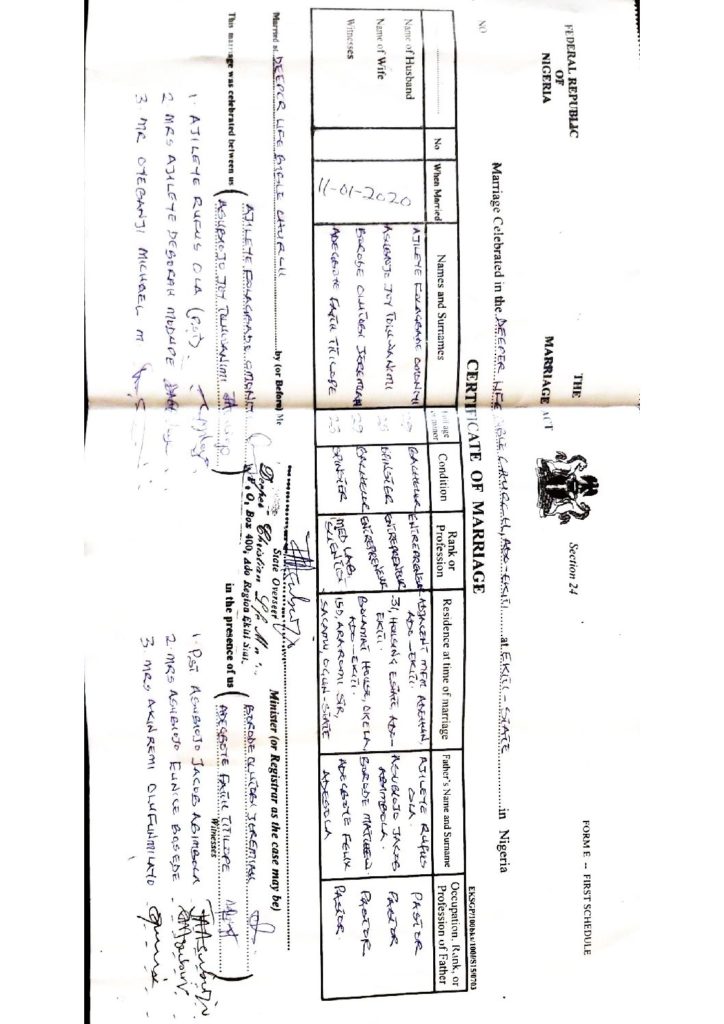 FORM E -- FIRST SCHEDULE
FEDERAL REPUBLIC
OF
NIGERIA
THE
MARRIAGE ACT
Section 24
Marriage Celebrated in the DEEPER LIFE BIBLE CHURCH, ADO-EKITI at EKITI - STATE in Nigeria
NO
CERTIFICATE OF MARRIAGE
EKSGP/100bks/100l/S15/0703
No When Married Names and Surnames Full age Condition Rank or Profession Residence at time of marriage Father's Name and Surname Occupation, Rank, or Profession of Father
11-01-2020
Name of Husband AJILEYE BACHELOR ENTREPRENEUR ADJACENT MFM ADO-EKITI. AJILEYE RUFUS OLA. PASTOR
Name of Wife JOY SPINSTER ENTREPRENEUR 31, HOUSING ESTATE ADO-EKITI. JACOB ABIMBOLA. PASTOR
Witnesses BORODE OLUTOBI JEREMIAH BACHELOR ENTREPRENEUR HOUSE, OKELA, ADO-EKITI. BORODE MATTHEW PASTOR
ADEGBOYE FAITH TITILOPE SPINSTER MED LAB. SCIENTIST 15D, ARAROMI STR, SAGAMU, OGUN-STATE ADEGBOYE FELIX ADESOLA PASTOR
Married at DEEPER LIFE BIBLE CHURCH by (or Before) Me
State Overseer
Deeper Christian Life
P.O. Box 400, Ado Region Ekiti State.
Minister (or Registrar as the case may be)
This marriage was celebrated between us AJILEYE in the presence of us BORODE OLUTOBI JEREMIAH
JOY ADEGBOYE FAITH TITILOPE
Witnesses
1. AJILEYE RUFUS OLA (PST)
2. MRS AJILEYE DEBORAH MODUPE
3. MR OYEBANJI MICHAEL M
1. PST JACOB ABIMBOLA
2. MRS EUNICE BOSEDE
3. MRS AKINREMI OLUFUNMILAYO